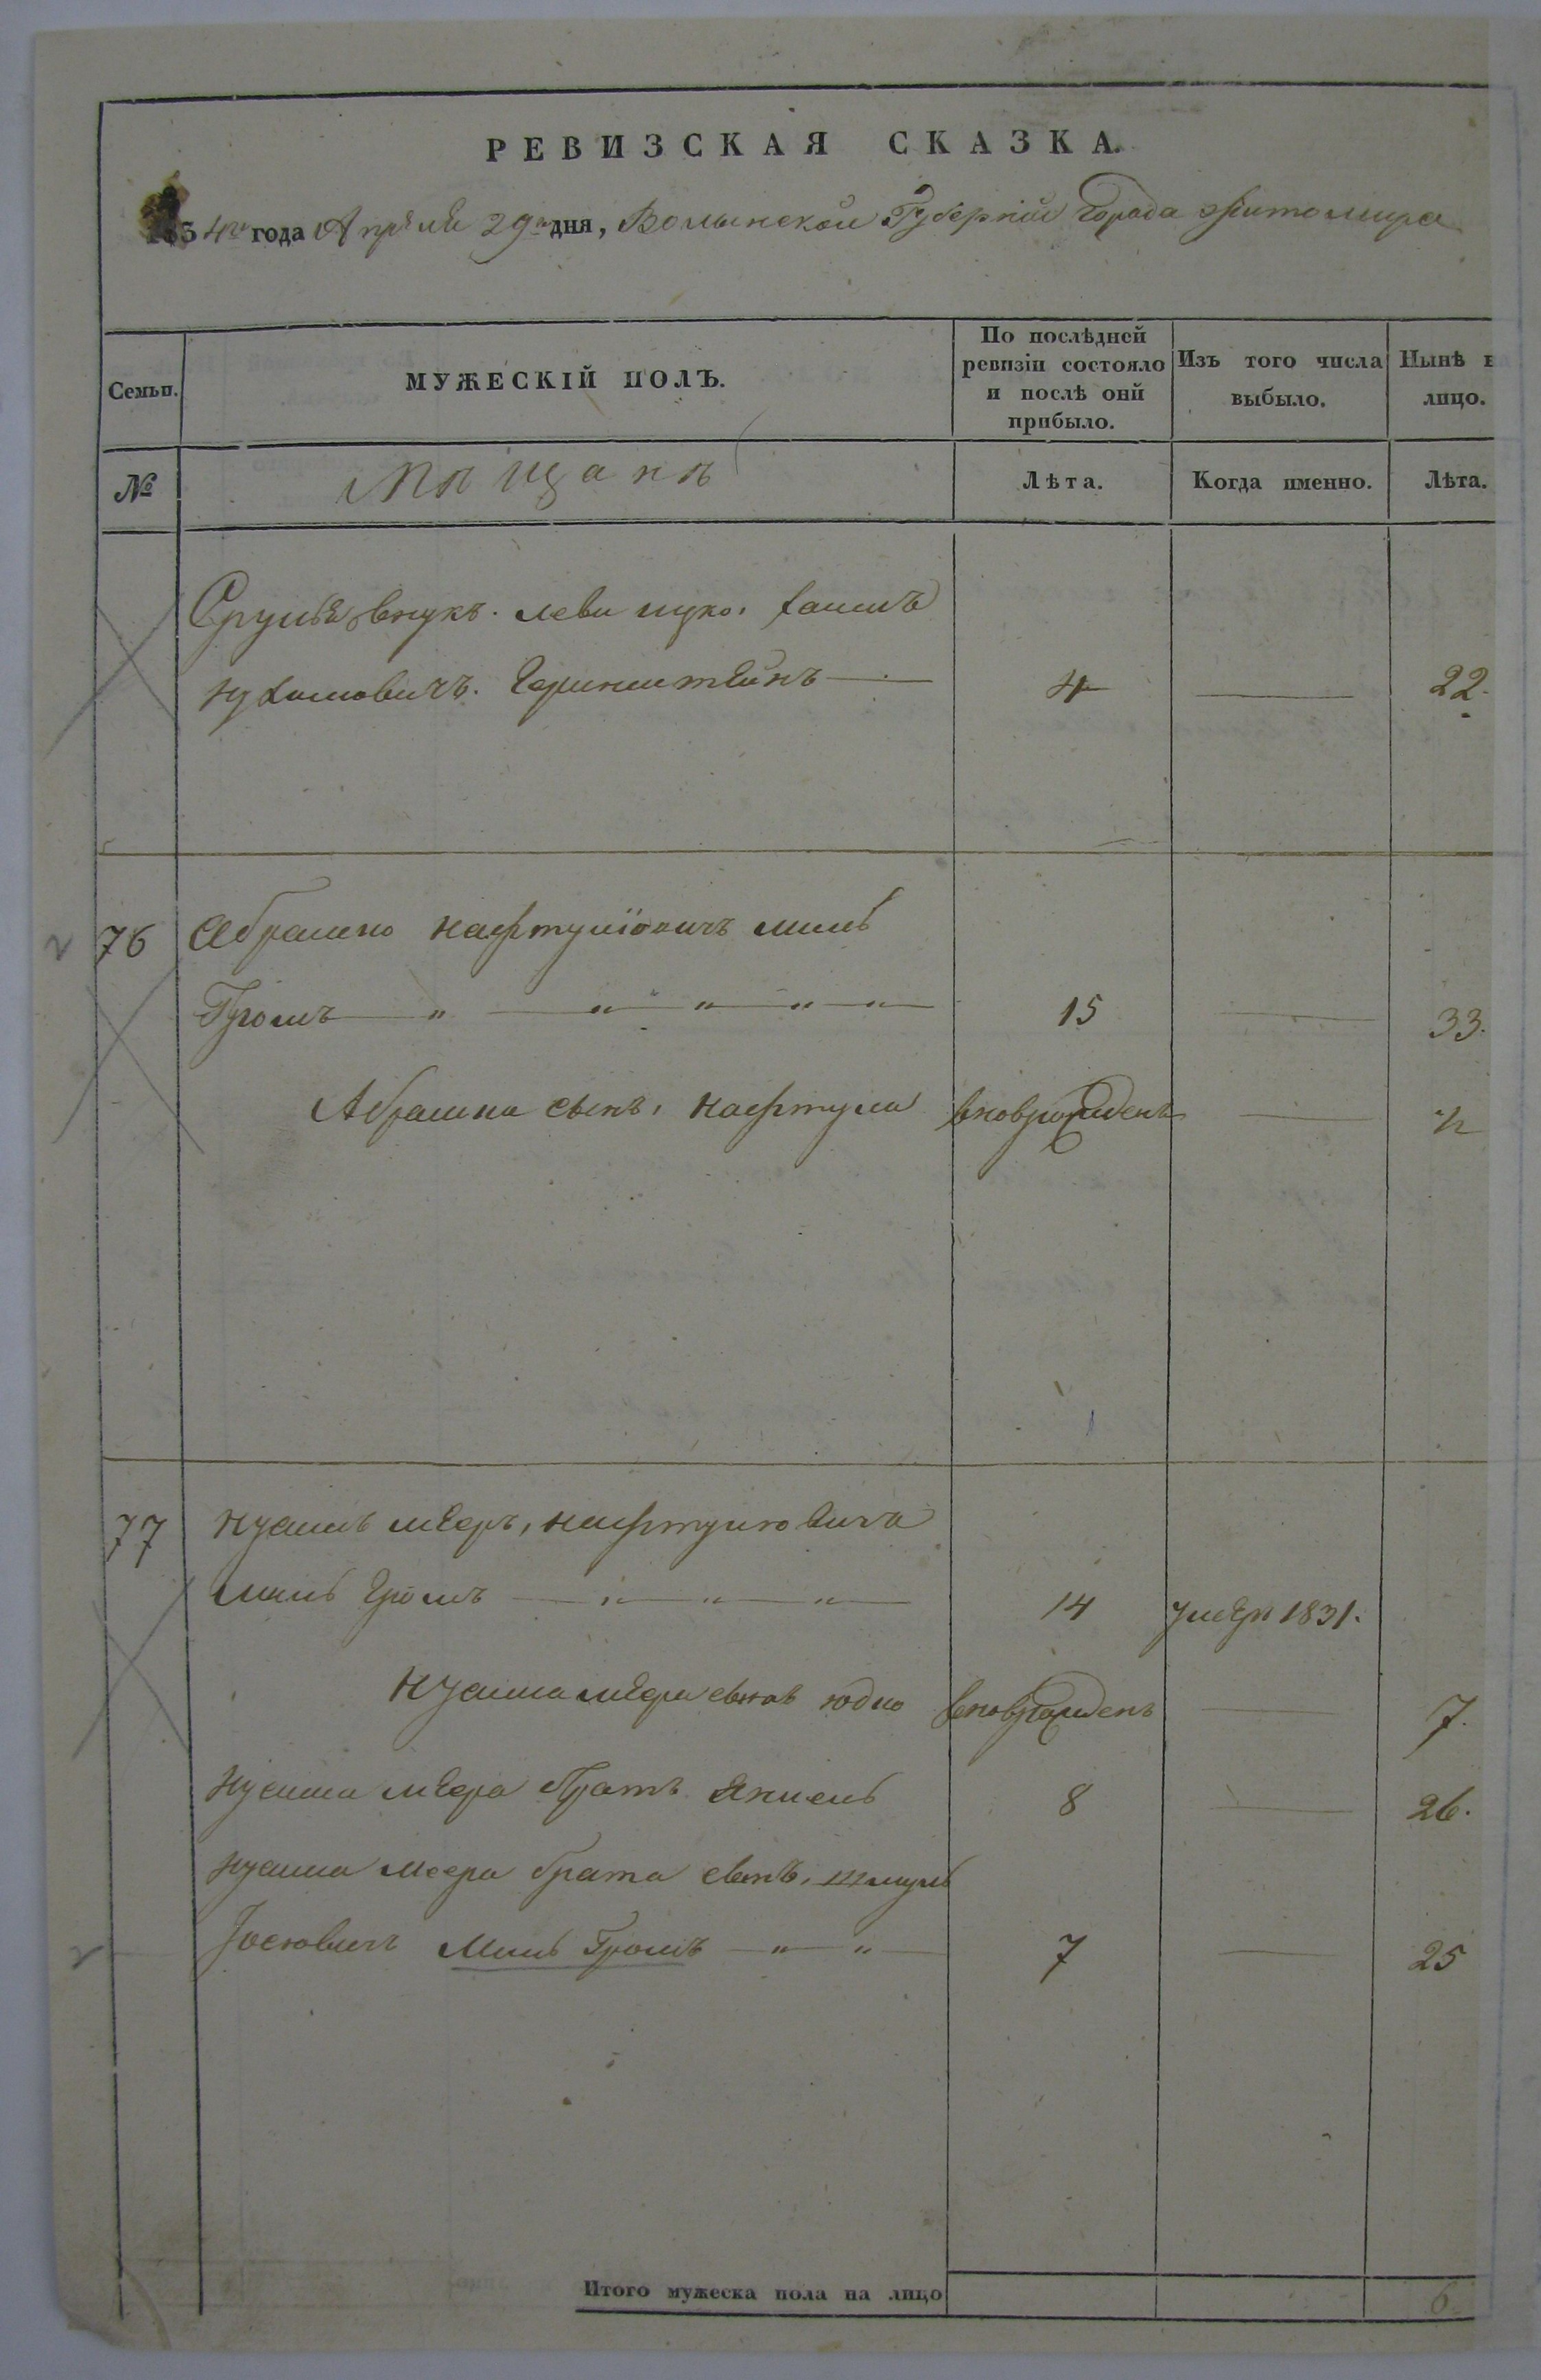 РЕВИЗСКАЯ СКАЗКА.
1834го года Апрѣля 29го дня, Волынской Губерніи Города Житомира
Семьи.
МУЖЕСКІЙ ПОЛЪ.
По послѣдней ревизіи состояло и послѣ оній прибыло.
Изъ того числа выбыло.
Нынѣ на лицо.
№
Мѣщанъ
Лѣта.
Когда именно.
Лѣта.
Сруля внукъ. Хаимъ
Нухимовичъ. 4 22.
76 Абрамко Нафтуліовичъ Миль
Громъ 15 33.
Абрамка сынъ, Нафтула вноврожденъ ½
77 Нусинъ Мееръ, Нафтуловича
Миль Громъ 14 умеръ 1831.
Нусина Меера сынъ Юдко вноврожденъ 7.
Нусина Меера братъ Янкель 8 26.
Нусина Меера брата сынъ, Шмуль
Іосковичъ Миль Громъ 7 25
Итого мужеска пола на лицо 6